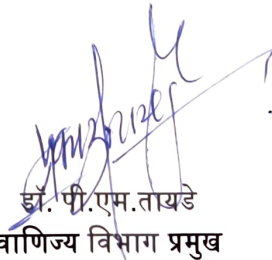 डॉ. पी.एम.तायडे
वाणिज्य विभाग प्रमुख